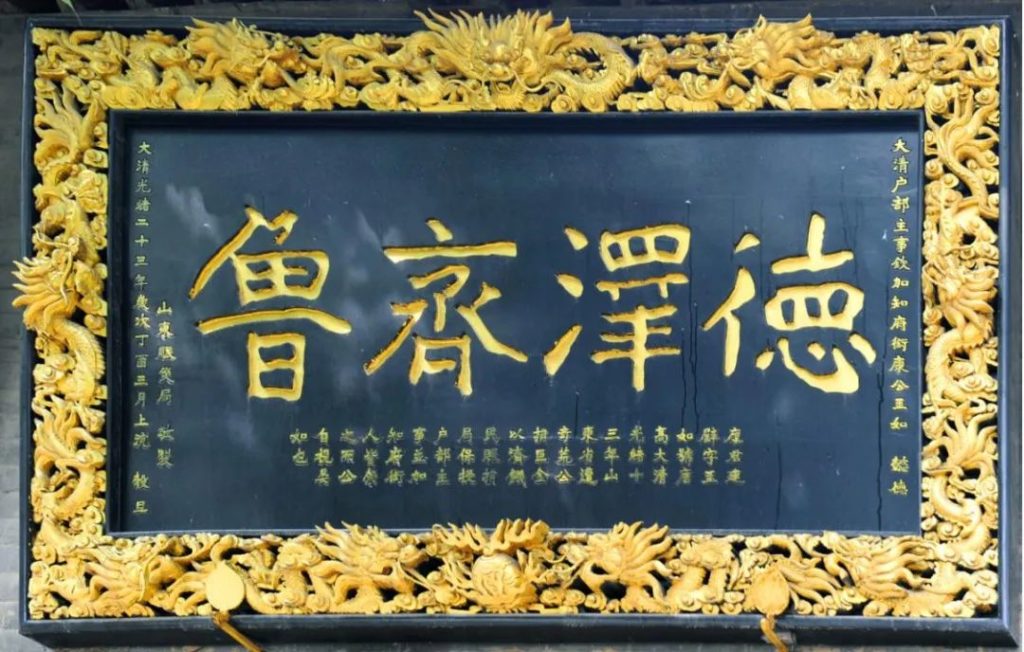 大清户部主事欽加知府銜康公玉如 懿德
德澤齊魯
康君建
壁字玉
如號
高大清
光緒十
三年山
東省遭
奇荒公
捐巨金
以濟饑
民賑
局保授
户部主
事並加
知府銜
人皆榮
之而公
自視
如也
山東賑局 敬製
大清光緒二十三年歲次丁酉三月上浣 穀旦